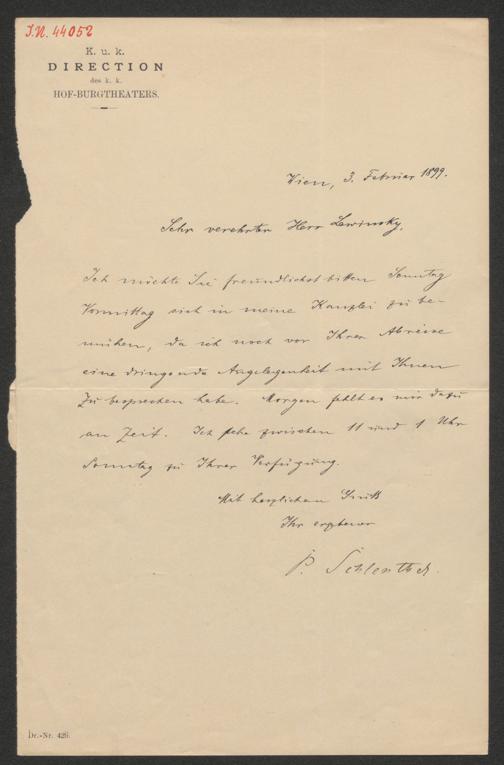 I.N. 44052
K. u. k.
DIRECTION
des k. k.
HOF-BURGTHEATERS.
Wien, 3. Februar 1899.
Sehr verehrter Herr Lewinsky,
Ich möchte Sie freundlichst bitten Sonntag
Vormittag sich in meine Kanzlei zu be-
mühen, da ich noch vor Ihrer Abreise
eine dringende Angelegenheit mit Ihnen
zu besprechen habe. Morgen fehlt es mir dazu
an Zeit. Ich stehe zwischen 11 und 1 Uhr
Sonntag zu Ihrer Verfügung.
Mit herzlichem Gruß
Ihr ergebener
P. Schlenther.
Dr.-Nr. 426.